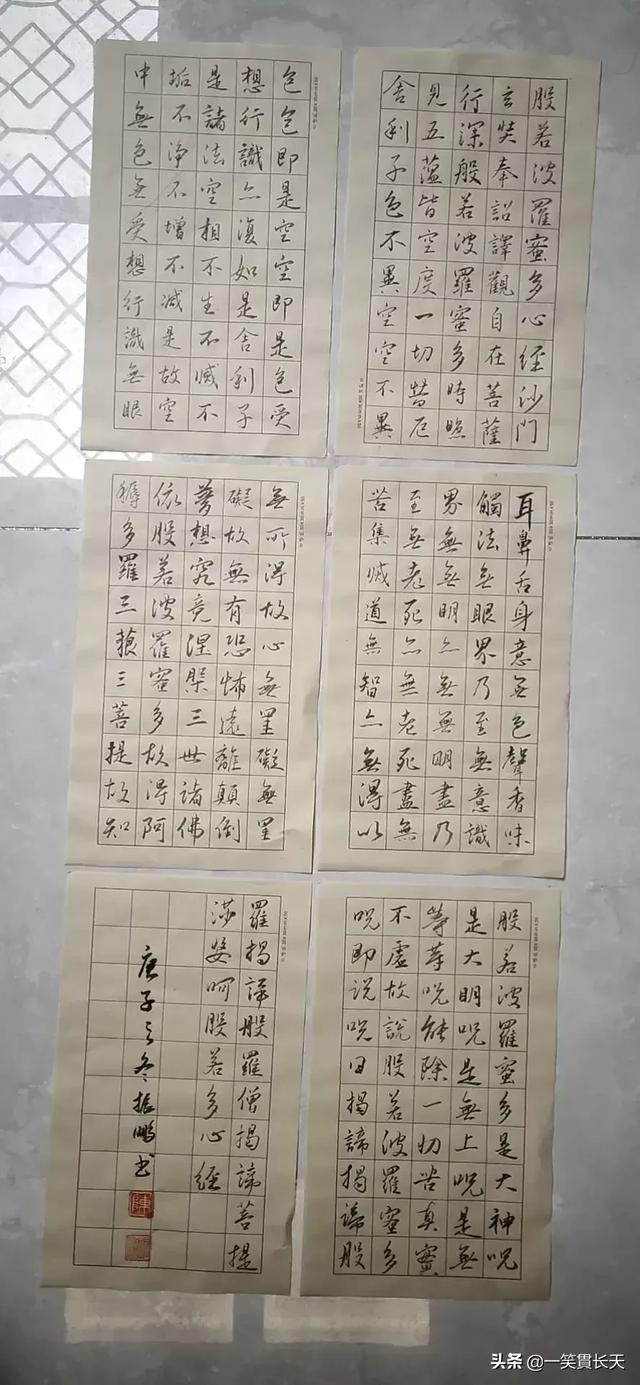 般若波羅蜜多心經沙門
玄奘奉詔譯觀自在菩薩
行深般若波羅蜜多時照
見五蕴皆空度一切苦厄
舍利子色不異空空不異
色色即是空空即是色受
想行識亦復如是舍利子
是諸法空相不生不滅不
垢不淨不增不減是故空
中無色無受想行識無眼
耳鼻舌身意無色聲香味
觸法無眼界乃至無意識
界無無明亦無無明盡乃
至無老死亦無老死盡無
苦集滅道無智亦無得以
無所得故心無罣礙無罣
礙故無有恐怖遠離顛倒
夢想究竟涅槃三世諸佛
依般若波羅蜜多故得阿
耨多羅三藐三菩提故知
般若波羅蜜多是大神呪
是大明呪是無上呪是無
等等呪能除一切苦真實
不虛故說般若波羅蜜多
呪即说呪曰揭諦揭諦般
羅揭諦般羅僧揭諦菩提
莎婆呵般若多心經
庚子之冬振鵬书
头条 @一笑貫长天